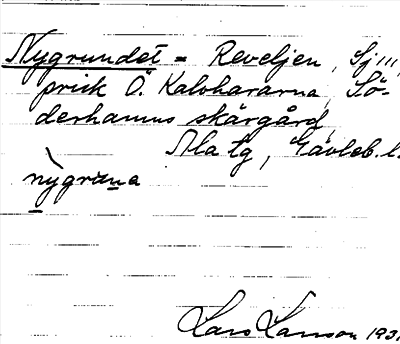 Nygrundet = Reveljen, Sj...
prick Ö. Kalvhararna, Sö-
derhamns skärgård,
Ala tg, Gävleb. l.
nygruna
Lars Larsson 193